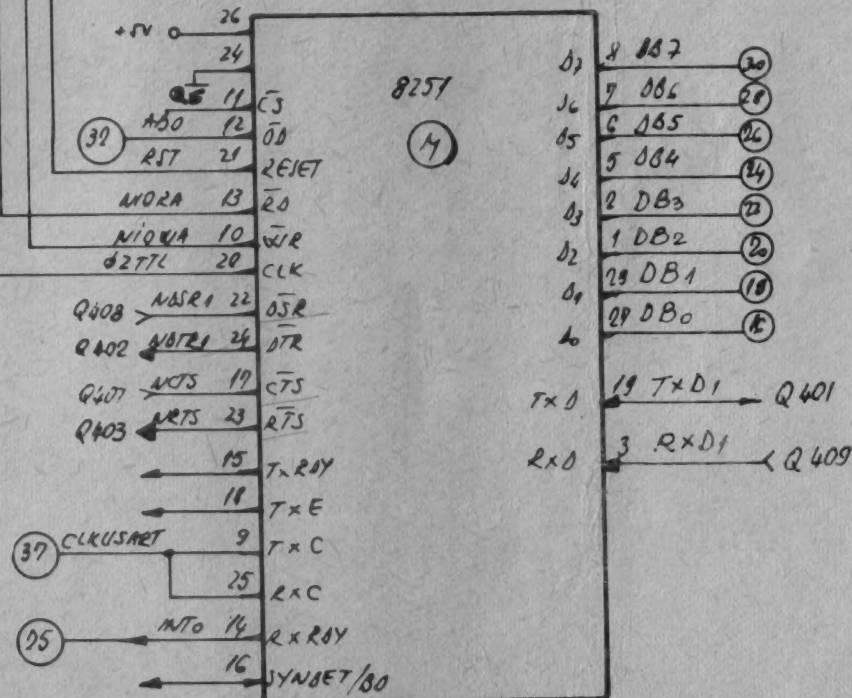 26
+5V
24
11 CS
32 AB0 12 OD
RST 21 RESET
NIORA 13 RD
NIOWA 10 WR
ϕ2TTL 20 CLK
Q408 NDSR1 22 DSR
Q402 NDTR1 24 DTR
Q407 NCTS 17 CTS
Q403 NRTS 23 RTS
15 TxRDY
18 TxE
37 CLKUSART 9 TxC
25 RxC
INT0 14 RxRDY
16 SYNDET/BD
8251
D7 8 DB7 30
D6 7 DB6 28
D5 6 DB5 26
D4 5 DB4 24
D3 2 DB3
D2 1 DB2 20
D1 DB1 18
D0 DB0
TxD 19 TxD1 Q401
RxD 3 RxD1 Q409